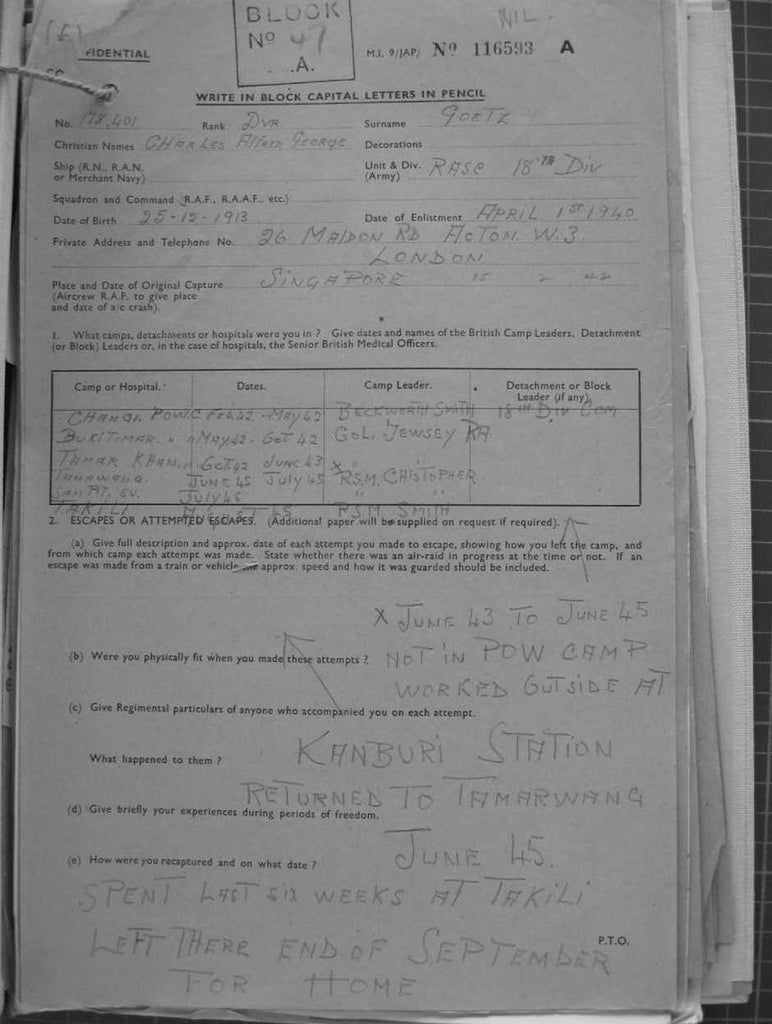 BLOCK
Nº 47
.A.
NIL.
(f)
FIDENTIAL
M.I. 9/JAP/ Nº 116593 A
WRITE IN BLOCK CAPITAL LETTERS IN PENCIL
No. 178,401 Rank DVR Surname GOETZ
Christian Names CHARLES Alfred George Decorations
Ship (R.N., R.A.N. or Merchant Navy) Unit & Div. (Army) RASC 18TH DIV
Squadron and Command (R.A.F., R.A.A.F., etc.)
Date of Birth 25-12-1913 Date of Enlistment APRIL 1ST 1940
Private Address and Telephone No. 26 MALDON RD ACTON W.3.
LONDON
Place and Date of Original Capture SINGAPORE 15 2 42
(Aircrew R.A.F. to give place
and date of a/c crash).
1. What camps, detachments or hospitals were you in ? Give dates and names of the British Camp Leaders, Detachment
(or Block) Leaders or, in the case of hospitals, the Senior British Medical Officers.
Camp or Hospital. Dates. Camp Leader. Detachment or Block Leader (if any).
CHANGI. POW.C FEB.42 - MAY 42 BECKWORTH SMITH 18TH DIV COM
BUKITIMAR. " " MAY 42 - OCT 42 COL. JEWSEY RA
TAMAR KHAN. " OCT 42 JUNE 43 X " "
TAMAWANG. JUNE 45 JULY 45 R.S.M. CHISTOPHER
JULY 45 " "
TAKILI 45 R.S.M. SMITH
2. ESCAPES OR ATTEMPTED ESCAPES. (Additional paper will be supplied on request if required).
(a) Give full description and approx. date of each attempt you made to escape, showing how you left the camp, and
from which camp each attempt was made. State whether there was an air-raid in progress at the time or not. If an
escape was made from a train or vehicle approx. speed and how it was guarded should be included.
X JUNE 43 TO JUNE 45
(b) Were you physically fit when you made these attempts ? NOT IN POW CAMP
WORKED OUTSIDE AT
(c) Give Regimental particulars of anyone who accompanied you on each attempt.
What happened to them ? KANBURI STATION
RETURNED TO TAMARWANG
(d) Give briefly your experiences during periods of freedom.
JUNE 45.
(e) How were you recaptured and on what date ?
SPENT LAST SIX WEEKS AT TAKILI
LEFT THERE END OF SEPTEMBER
P.T.O.
FOR HOME